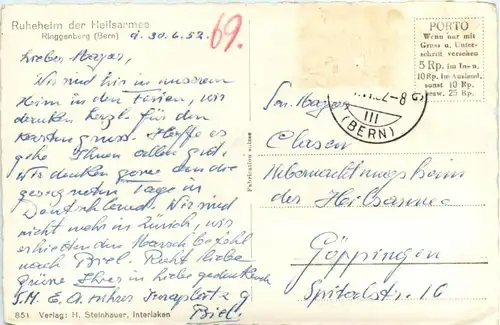 Ruheheim der Heilsarmee
Ringgenberg (Bern)
d. 30.6.52.
69.
Lieber Major,
Wir sind hier in unserem
Heim in den Ferien, wir
danken herzl. für den
Kartengruss. Hoffe es
gehe Ihnen allen gut,
Wir denken gerne an die
gesegneten Tage in
Deutschland. Wir sind
nicht mehr in Zürich, wir
erhielten den Marschbefehl
nach Biel. Recht liebe
Grüsse Ihrer in Liebe gedenkend
Biel.
851 Verlag: H. Steinhauer, Interlaken
Fabrication suisse
PORTO
Wenn nur mit
Gruss u. Unter-
schrift versehen
5 Rp. im In- u.
10 Rp. im Ausland,
sonst 10 Rp.
bezw. 25 Rp.
III
(BERN)
Major
Clasen
Uebernachtungsheim
der Heilsarmee
Göppingen
Spitalstr. 16